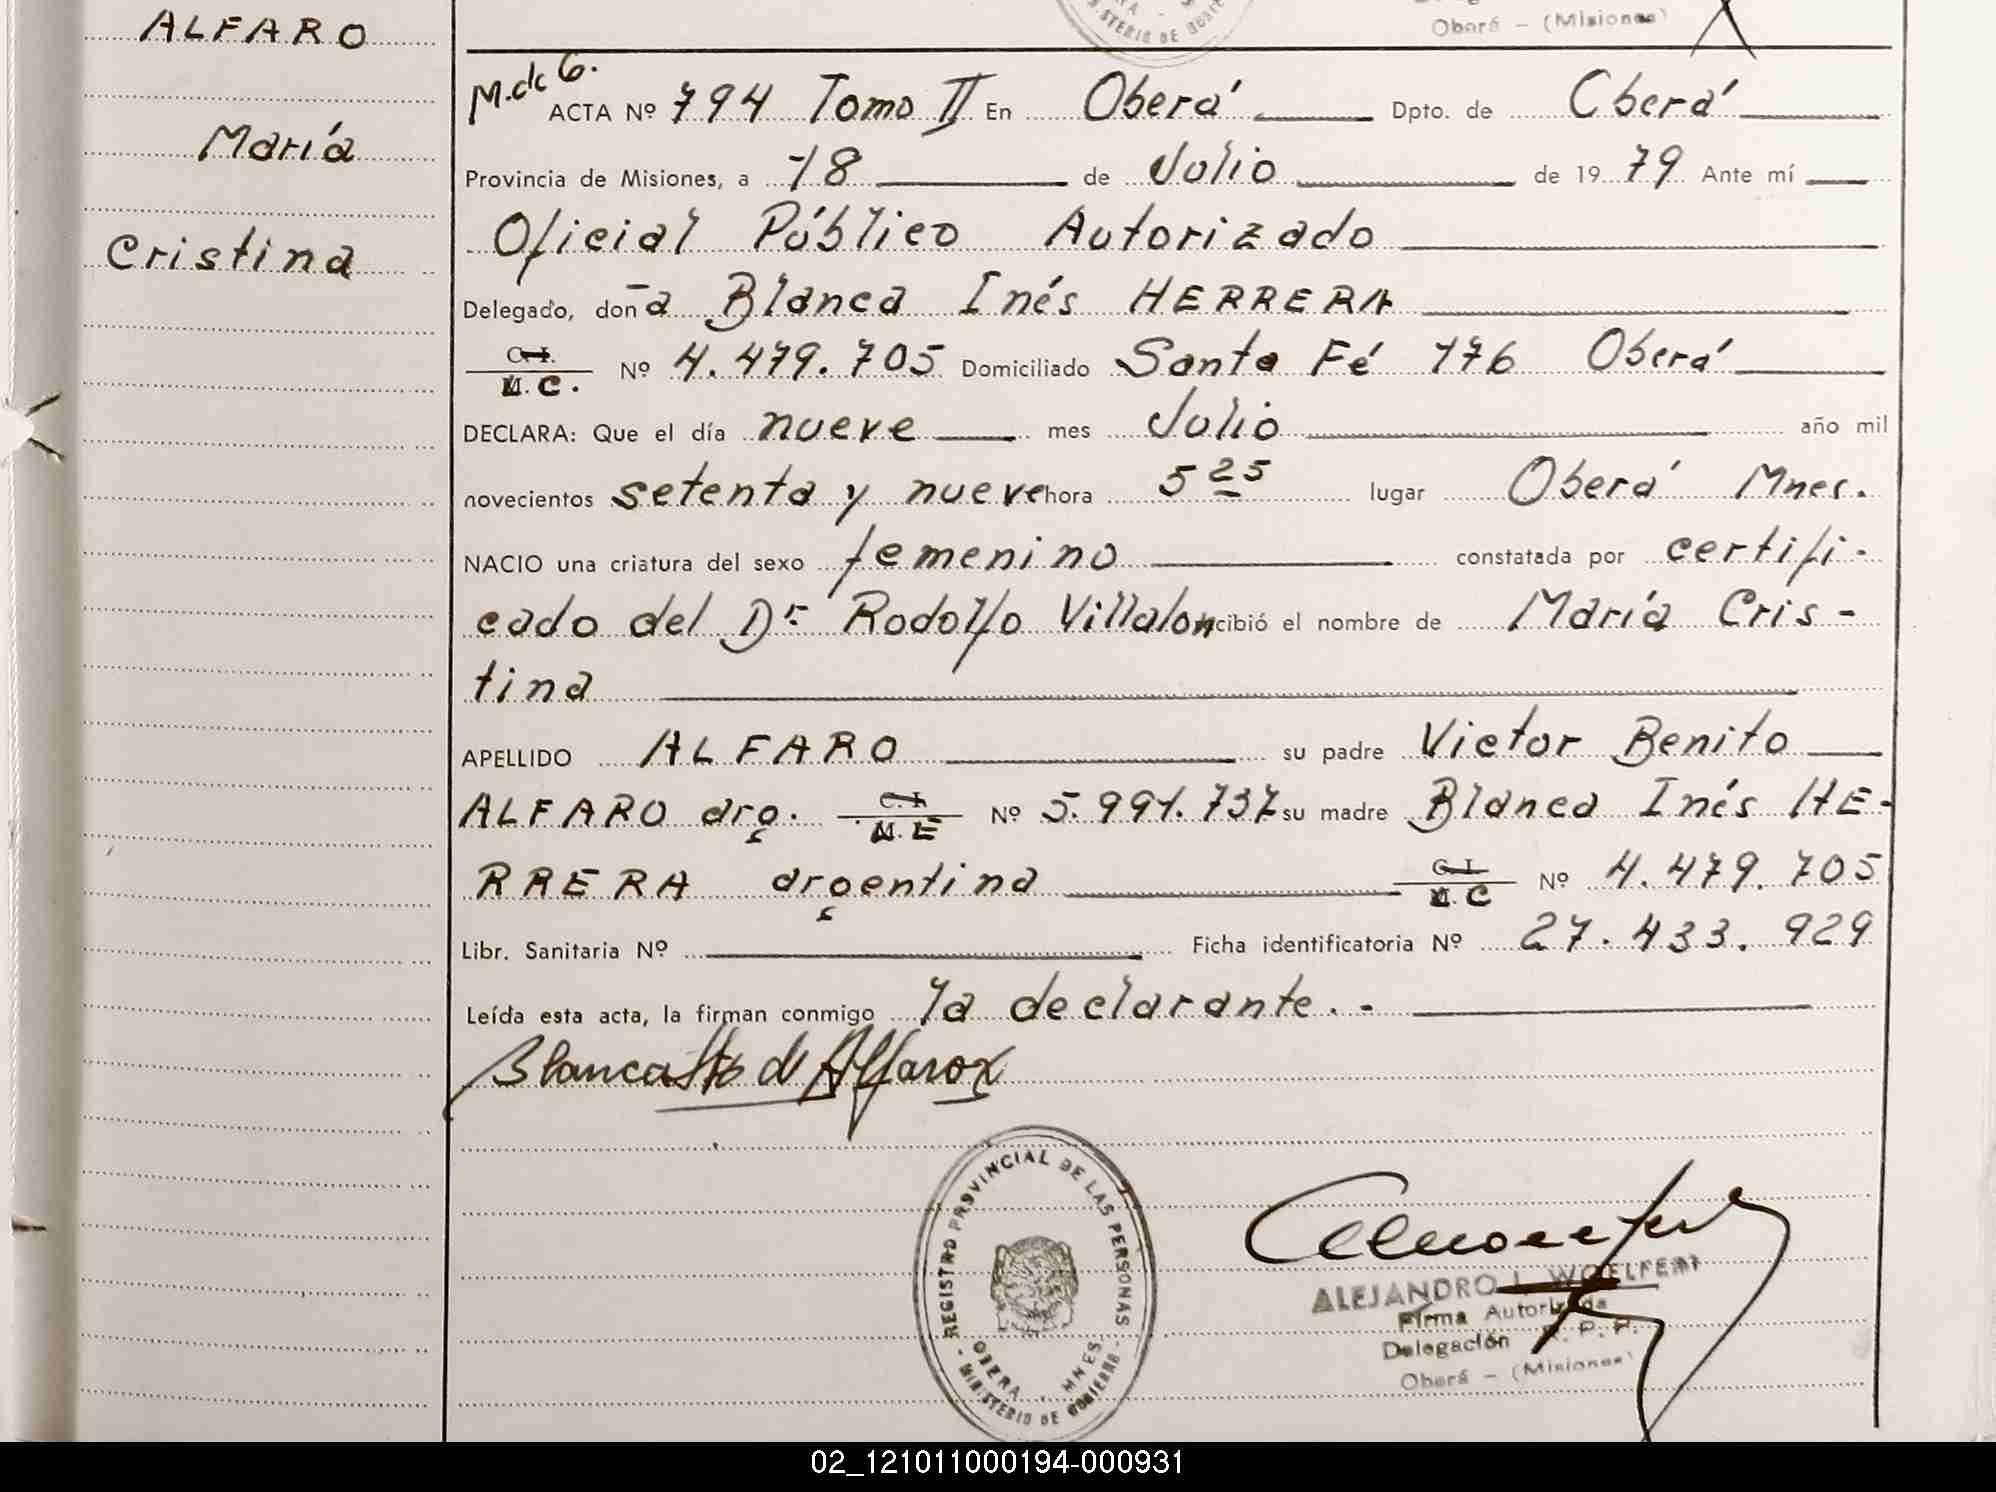 Oberá - (Misiones)
MINISTERIO DE GOBIERNO
ALFARO
María
Cristina
M.dc G.
ACTA Nº 794 Tomo II En Oberá Dpto. de Oberá
Provincia de Misiones, a 18 de Julio de 1979 Ante mí
Oficial Público Autorizado
Delegado, doña Blanca Inés HERRERA
C.I.
L.C. Nº 4.479.705 Domiciliado Santa Fé 176 Oberá
DECLARA: Que el día nueve mes Julio año mil
novecientos setenta y nueve hora 5 25 lugar Oberá Mnes.
NACIO una criatura del sexo femenino constatada por certifi-
cado del Dr Rodolfo Villalon cibió el nombre de María Cris-
tina
APELLIDO ALFARO su padre Victor Benito
ALFARO arg. C.I. M.E Nº 5.991.737 su madre Blanca Inés HE-
RRERA argentina C.I. L.C Nº 4.479.705
Libr. Sanitaria Nº Ficha identificatoria Nº 27.433.929
Leída esta acta, la firman conmigo la declarante.-
Blanca de Alfaro
REGISTRO PROVINCIAL DE LAS PERSONAS
OBERA - MNES
MINISTERIO DE GOBIERNO
ALEJANDRO L. WOELFERT
Firma Autorizada
Delegación R. P. P.
Oberá - (Misiones)
02_121011000194-000931